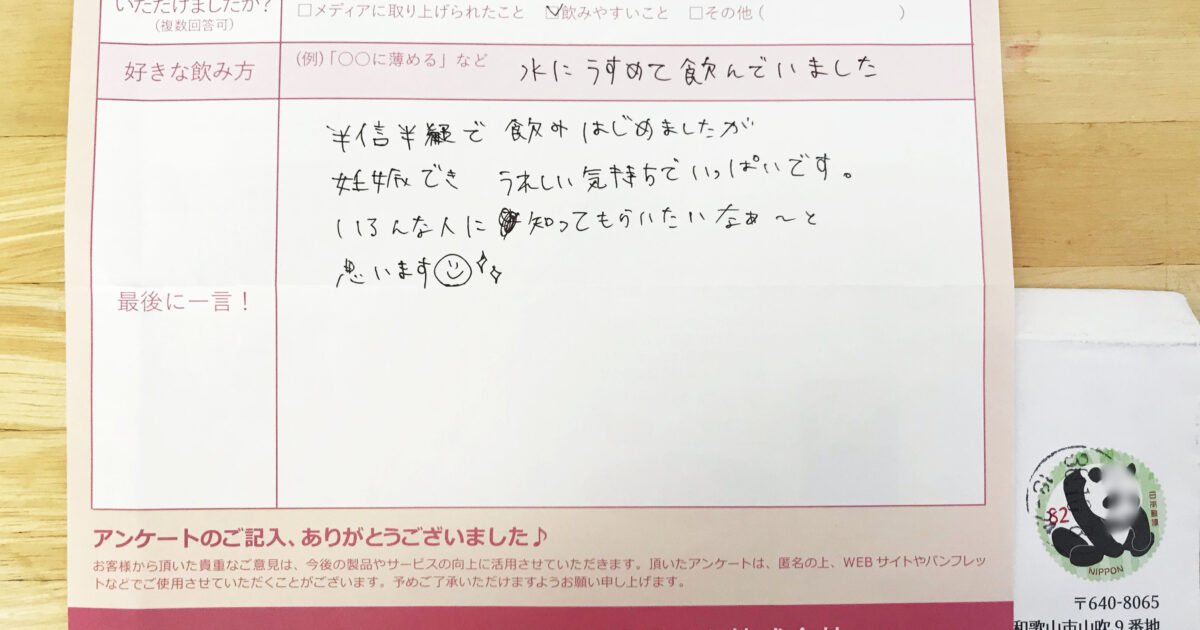 いただけましたか？
(複数回答可)
□メディアに取り上げられたこと ☑飲みやすいこと □その他 ( )
好きな飲み方
(例)「○○に薄める」など
水にうすめて飲んでいました
最後に一言！
半信半疑で 飲みはじめましたが
妊娠でき うれしい気持ちでいっぱいです。
いろんな人に 知ってもらいたいなぁ〜と
思います
アンケートのご記入、ありがとうございました♪
お客様から頂いた貴重なご意見は、今後の製品やサービスの向上に活用させていただきます。頂いたアンケートは、匿名の上、WEBサイトやパンフレッ
トなどでご使用させていただくことがございます。予めご了承いただけますようお願い申し上げます。
82
日本郵便
NIPPON
〒640-8065
和歌山市山吹9番地